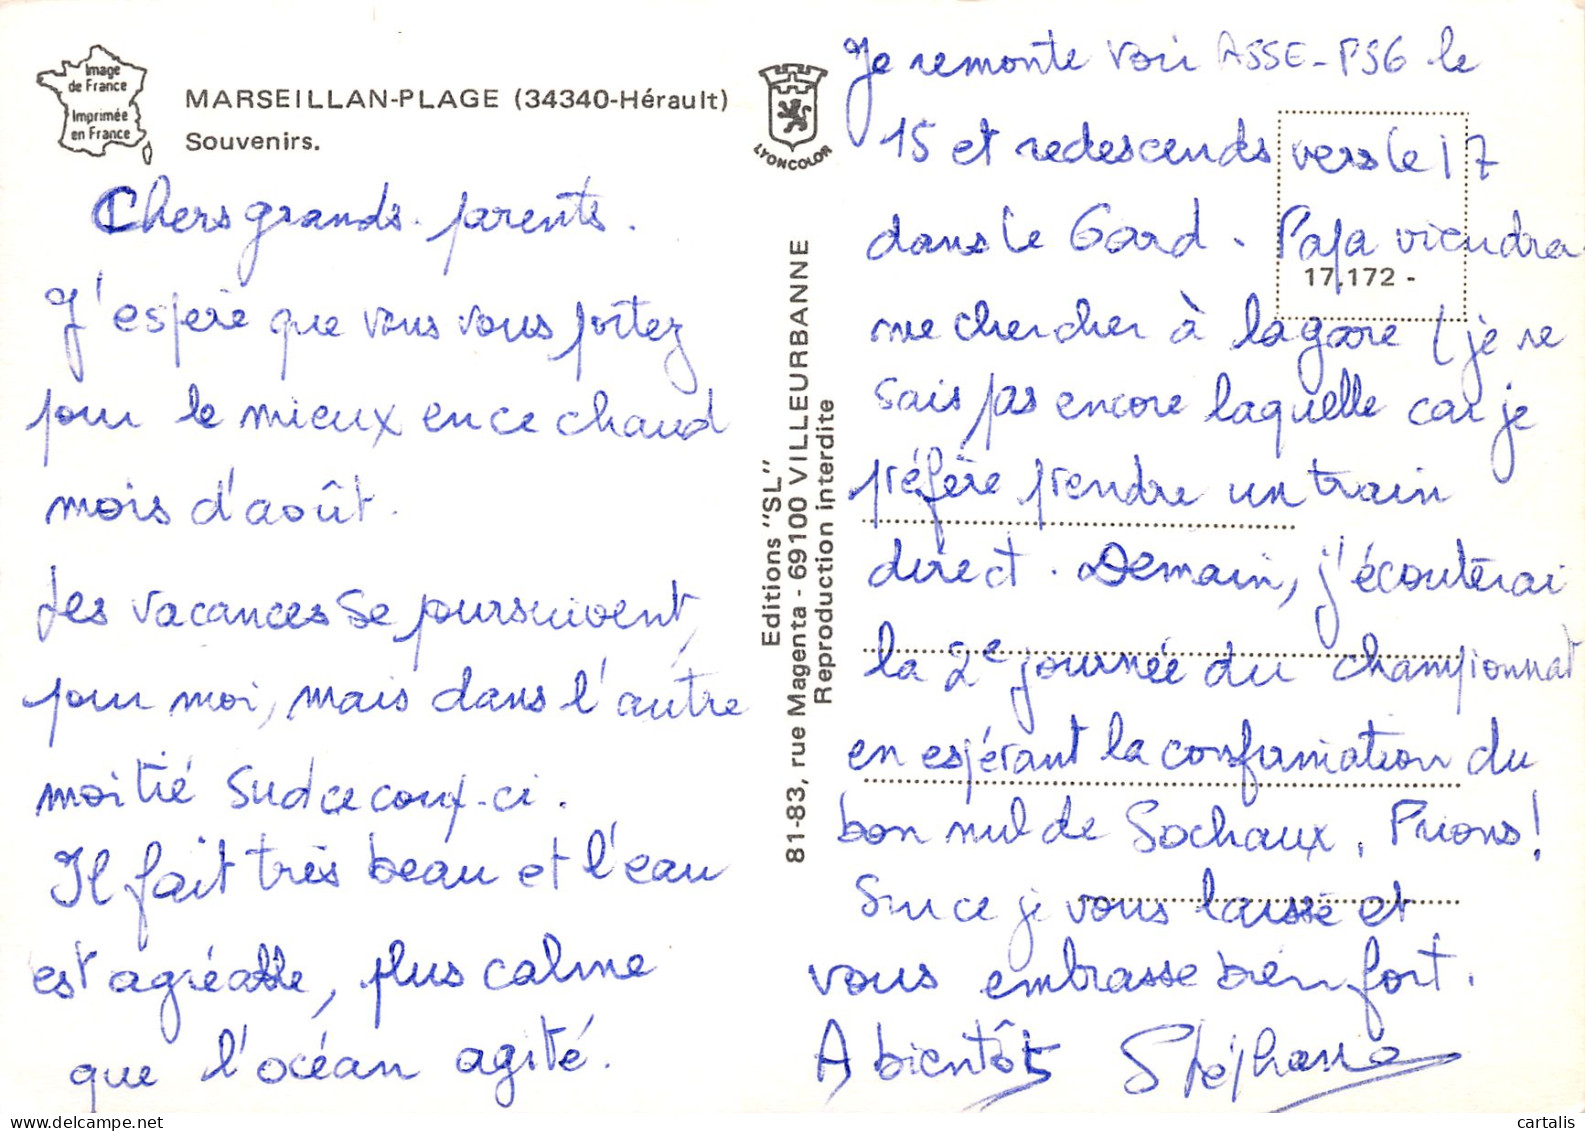 Image
de France
Imprimée
en France
MARSEILLAN-PLAGE (34340-Hérault)
Souvenirs.
LYONCOLOR
Chers grands-parents.
J'espère que vous vous portez
pour le mieux en ce chaud
mois d'août.
Les vacances se poursuivent,
pour moi, mais dans l'autre
moitié sud ce coup-ci.
Il fait très beau et l'eau
est agréable, plus calme
que l'océan agité.
Editions "SL"
81-83, rue Magenta - 69100 VILLEURBANNE
Reproduction interdite
17.172 -
Je remonte voir ASSE-PSG le
15 et redescends vers le 17
dans le Gard. Papa viendra
me chercher à la gare (je ne
sais pas encore laquelle car je
préfère prendre un train
direct. Demain, j'écouterai
la 2e journée du championnat
en espérant la confirmation du
bon nul de Sochaux. Prions!
Sur ce je vous laisse et
vous embrasse bien fort.
A bientôt Stéphane
cartalis